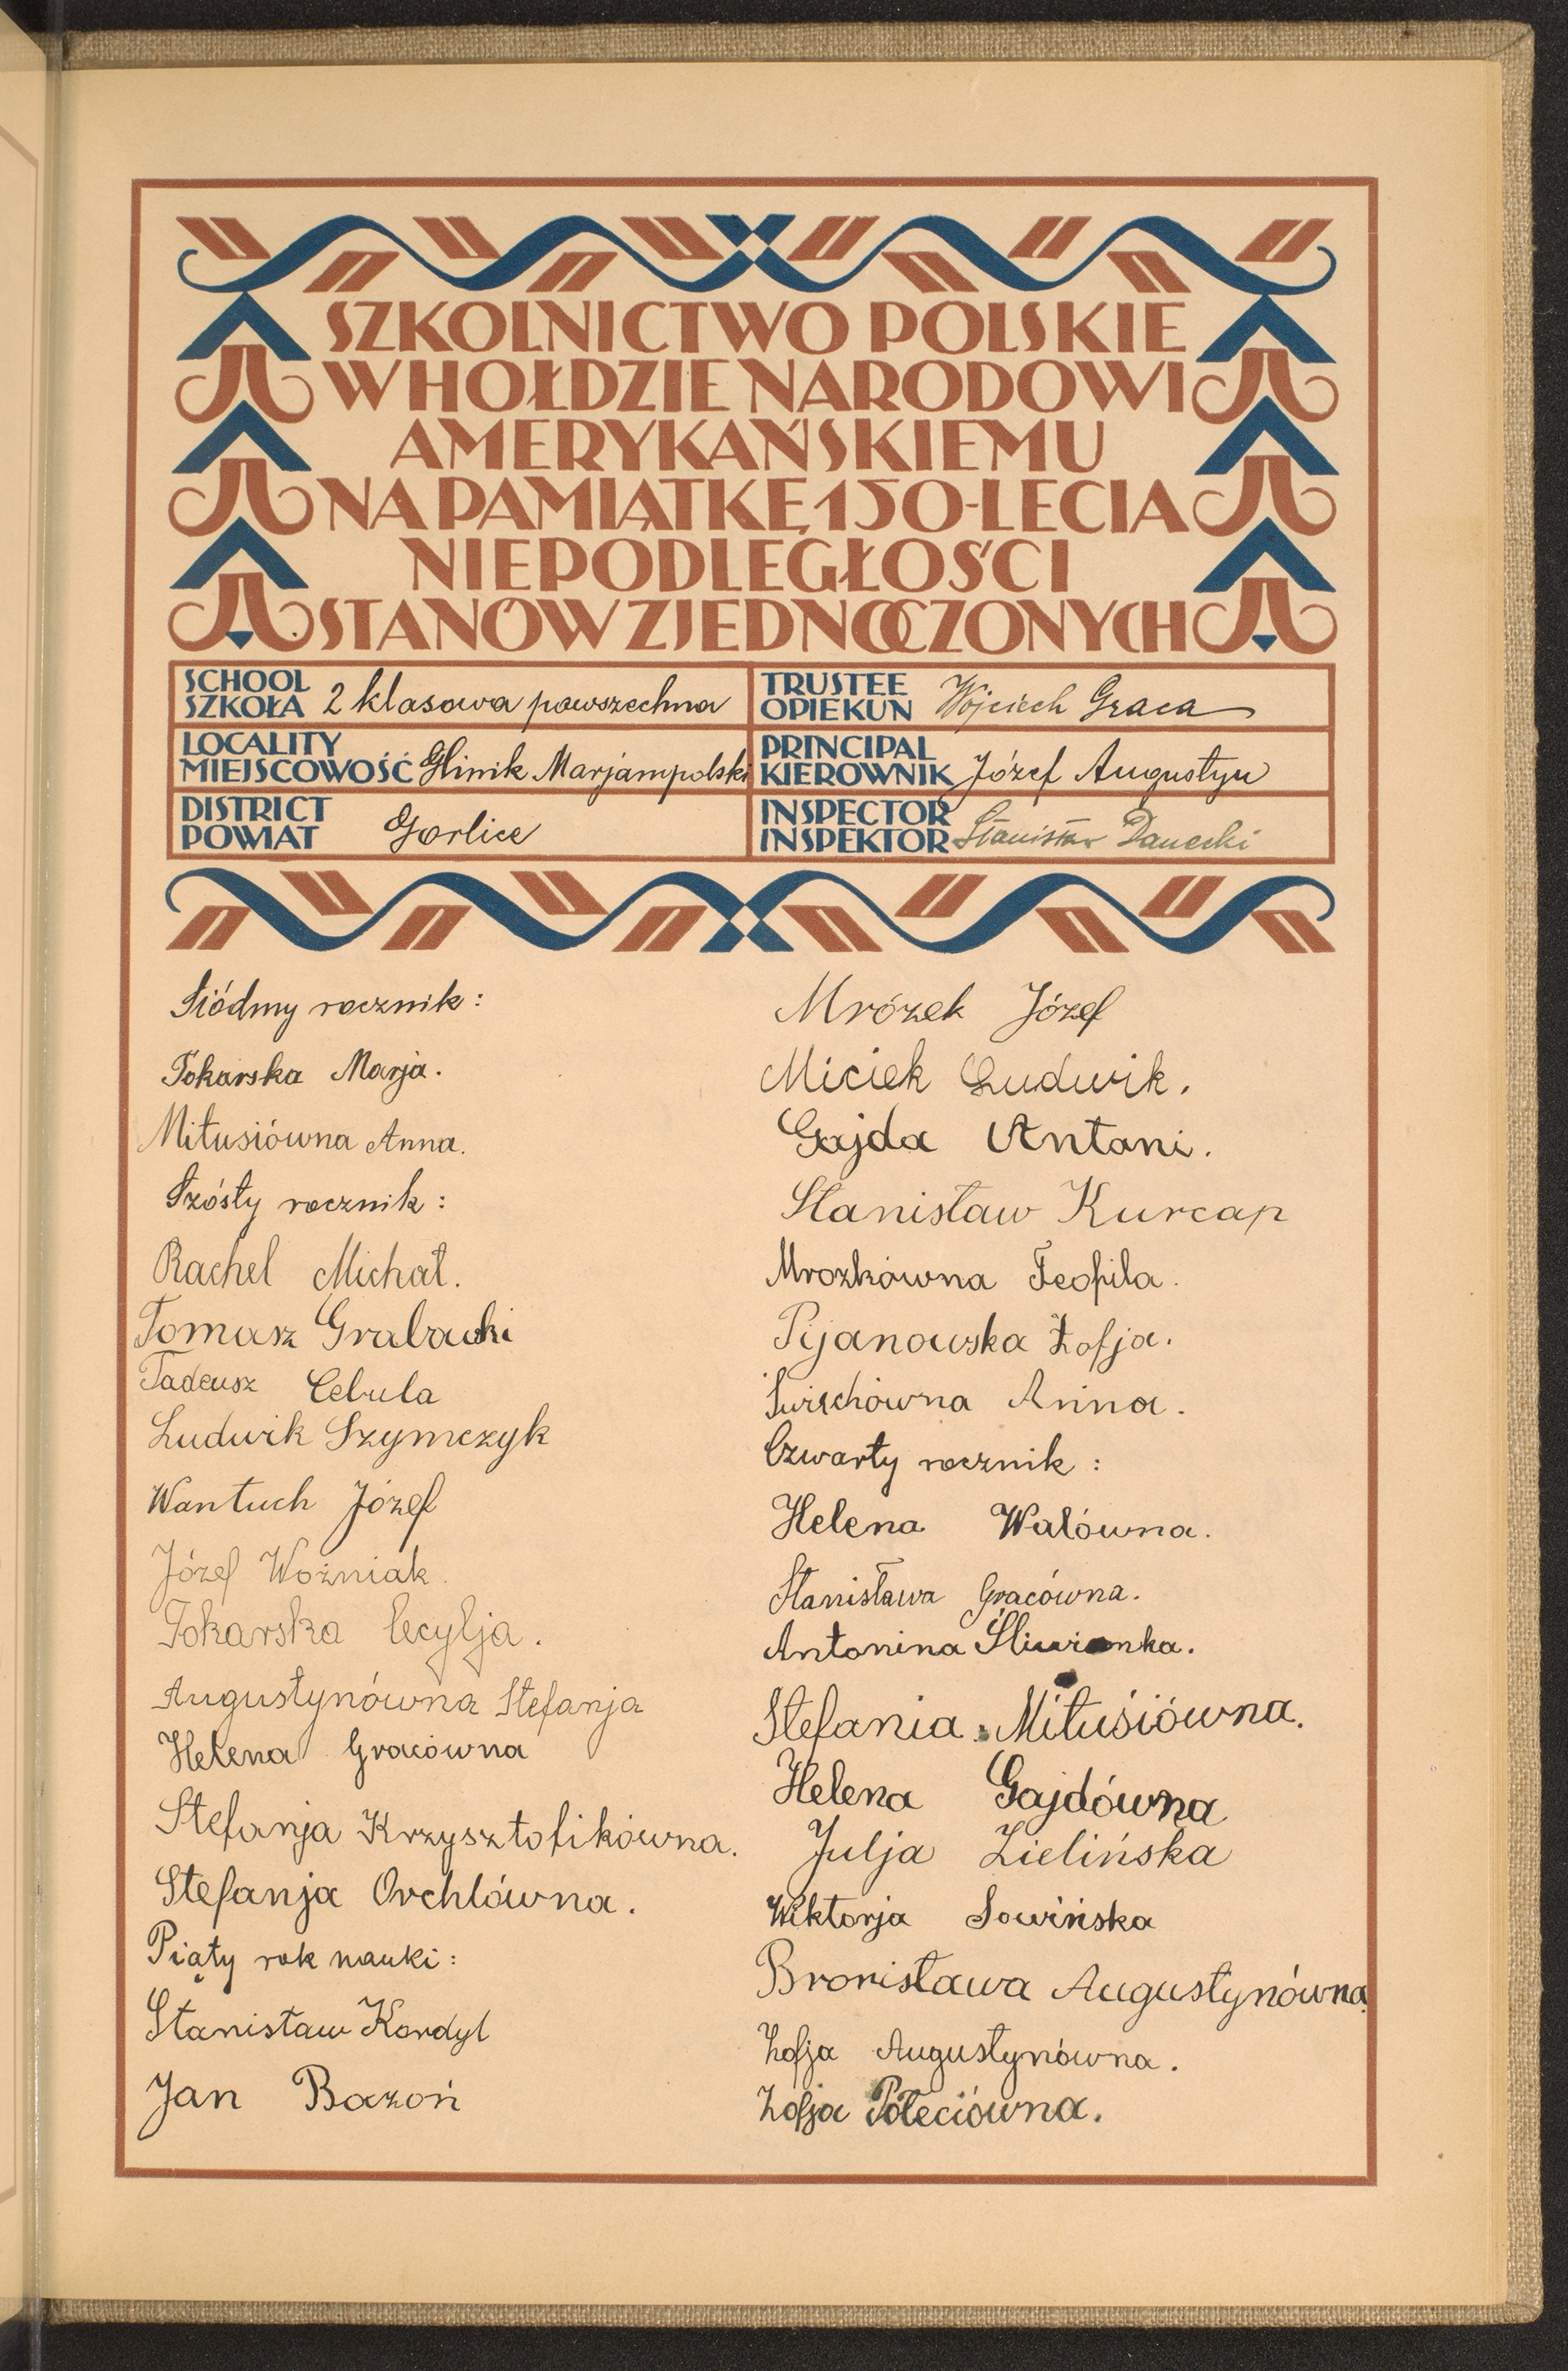 SZKOLNICTWO POLSKIE
W HOŁDZIE NARODOWI
AMERYKAŃSKIEMU
NA PAMIĄTKĘ 150-LECIA
NIEPODLEGŁOŚCI
STANÓW ZJEDNOCZONYCH
SCHOOL
SZKOŁA 2 klasowa powszechna
TRUSTEE
OPIEKUN Wojciech Graca
LOCALITY
MIEJSCOWOŚĆ Glinik Marjampolski
PRINCIPAL
KIEROWNIK Józef Augustyn
DISTRICT
POWIAT Gorlice
INSPECTOR
INSPEKTOR Stanisław Danecki
Siódmy rocznik:
Tokarska Marja.
Mitusiówna Anna.
Szósty rocznik:
Rachel Michał.
Tomasz Grabacki
Tadeusz Cebula
Ludwik Szymczyk
Wantuch Józef
Józef Woźniak.
Tokarska Cecylja.
Augustynówna Stefanja
Helena Gracówna
Stefanja Krzysztofikówna.
Stefanja Orchlówna.
Piąty rok nauki:
Stanisław Kordyl
Jan Bazoń
Mrózek Józef
Miciek Ludwik.
Gajda Antani.
Stanisław Kurcap
Mrozkówna Teofila.
Pijanowska Zofja.
Świechówna Anna.
Czwarty rocznik:
Helena Walówna.
Stanisława Gracówna.
Antonina Śliwianka.
Stefania Mituśiówna.
Helena Gajdówna
Julja Zielińska
Wiktorja Sowińska
Bronisława Augustynówna
Zofja Augustynówna.
Zofja Połeciówna.